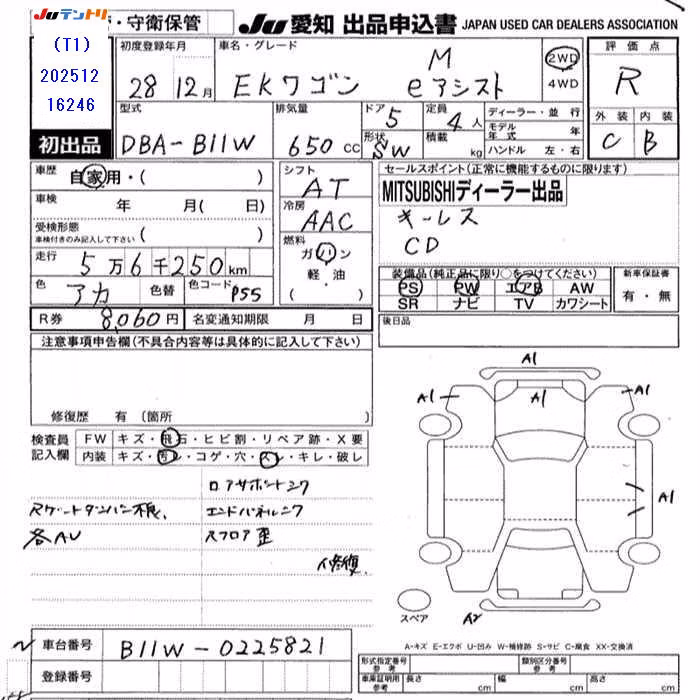 Juテントリ ・守衛保管 Ju愛知 出品申込書 JAPAN USED CAR DEALERS ASSOCIATION
(T1)
202512
16246
初出品
初度登録年月 車名・グレード 評価点
28年12月 EKワゴン M eアシスト 2WD 4WD R
型式 排気量 ドア 定員 ディーラー・並行 外装 内装
DBA-B11W 650cc 5 4人 モデル年式 年 C B
形状 SW 積載 kg ハンドル 左・右
車歴 自家用・( ) シフト AT セールスポイント(正常に機能するものに限ります)
車検 年 月( 日) 冷房 AAC MITSUBISHIディーラー出品
受検形態 ( ) キーレス
車検付きのみ記入して下さい 燃料 CD
走行 5万6千250km ガソリン 装備品(純正品に限り○をつけてください) 新車保証書
色 アカ 色替 色コード P55 軽・油 PS PW エアB AW 有・無
・( ) SR ナビ TV カワシート
R券 8,060円 名変通知期限 月 日 後日品
注意事項申告欄(不具合内容等は具体的に記入して下さい)
A1
A1 A1 A1
修復歴 有 (箇所 )
検査員記入欄 FW キズ・飛石・ヒビ割・リペア跡・X要
内装 キズ・汚レ・コゲ・穴・スレ・キレ・破レ
A1
ロアサポートシワ
エンドパネルシワ
各AU スフロア歪
修復
スペア A2
A-キズ E-エクボ U-凹み W-補修跡 S-サビ C-腐食 XX-交換済
車台番号 B11W-0225821
登録番号
形式指定番号 参考 類別区分番号 参考
車庫証明用 参考 長さ cm 幅 cm 高さ cm